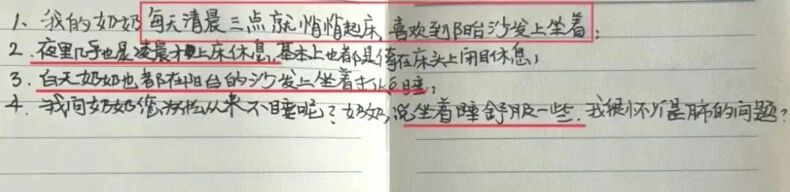 1、我的奶奶每天清晨三点就悄悄起床,喜欢到阳台沙发上坐着;
2.夜里几乎也是凌晨才上床休息,基本上也都是倚在床头上闭目休息;
3.白天奶奶也都在阳台的沙发上坐着打瞌睡;
4.我问奶奶您为什么从来不睡呢?奶奶说坐着睡舒服一些.我很怀疑是肺的问题?